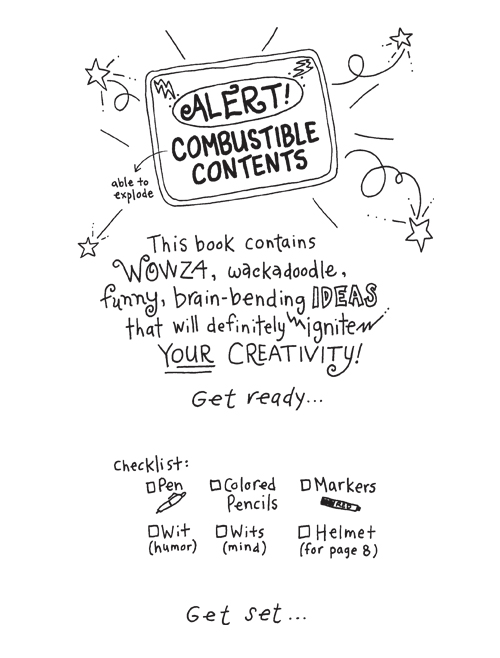 ALERT!
COMBUSTIBLE
CONTENTS
able to
explode
This book contains
WOWZA, wackadoodle,
funny, brain-bending IDEAS
that will definitely ignite
YOUR CREATIVITY!
Get ready...
Checklist:
Pen Colored Pencils Markers
RED
Wit (humor) Wits (mind) Helmet (for page 8)
Get set...